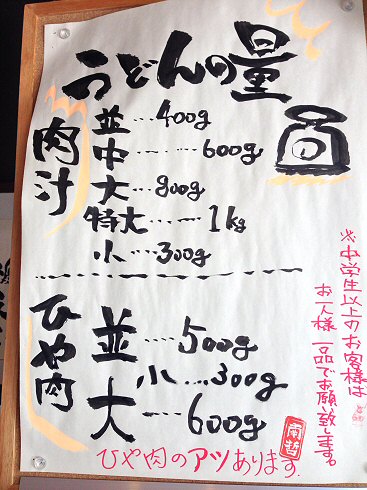 うどんの量
肉汁
並…400g
中…600g
大…800g
特大…1kg
小…300g
ひや肉
並…500g
小…300g
大…600g
ひや肉のアツあります.
※中学生以上のお客様は
お一人様一品でお願い致します。